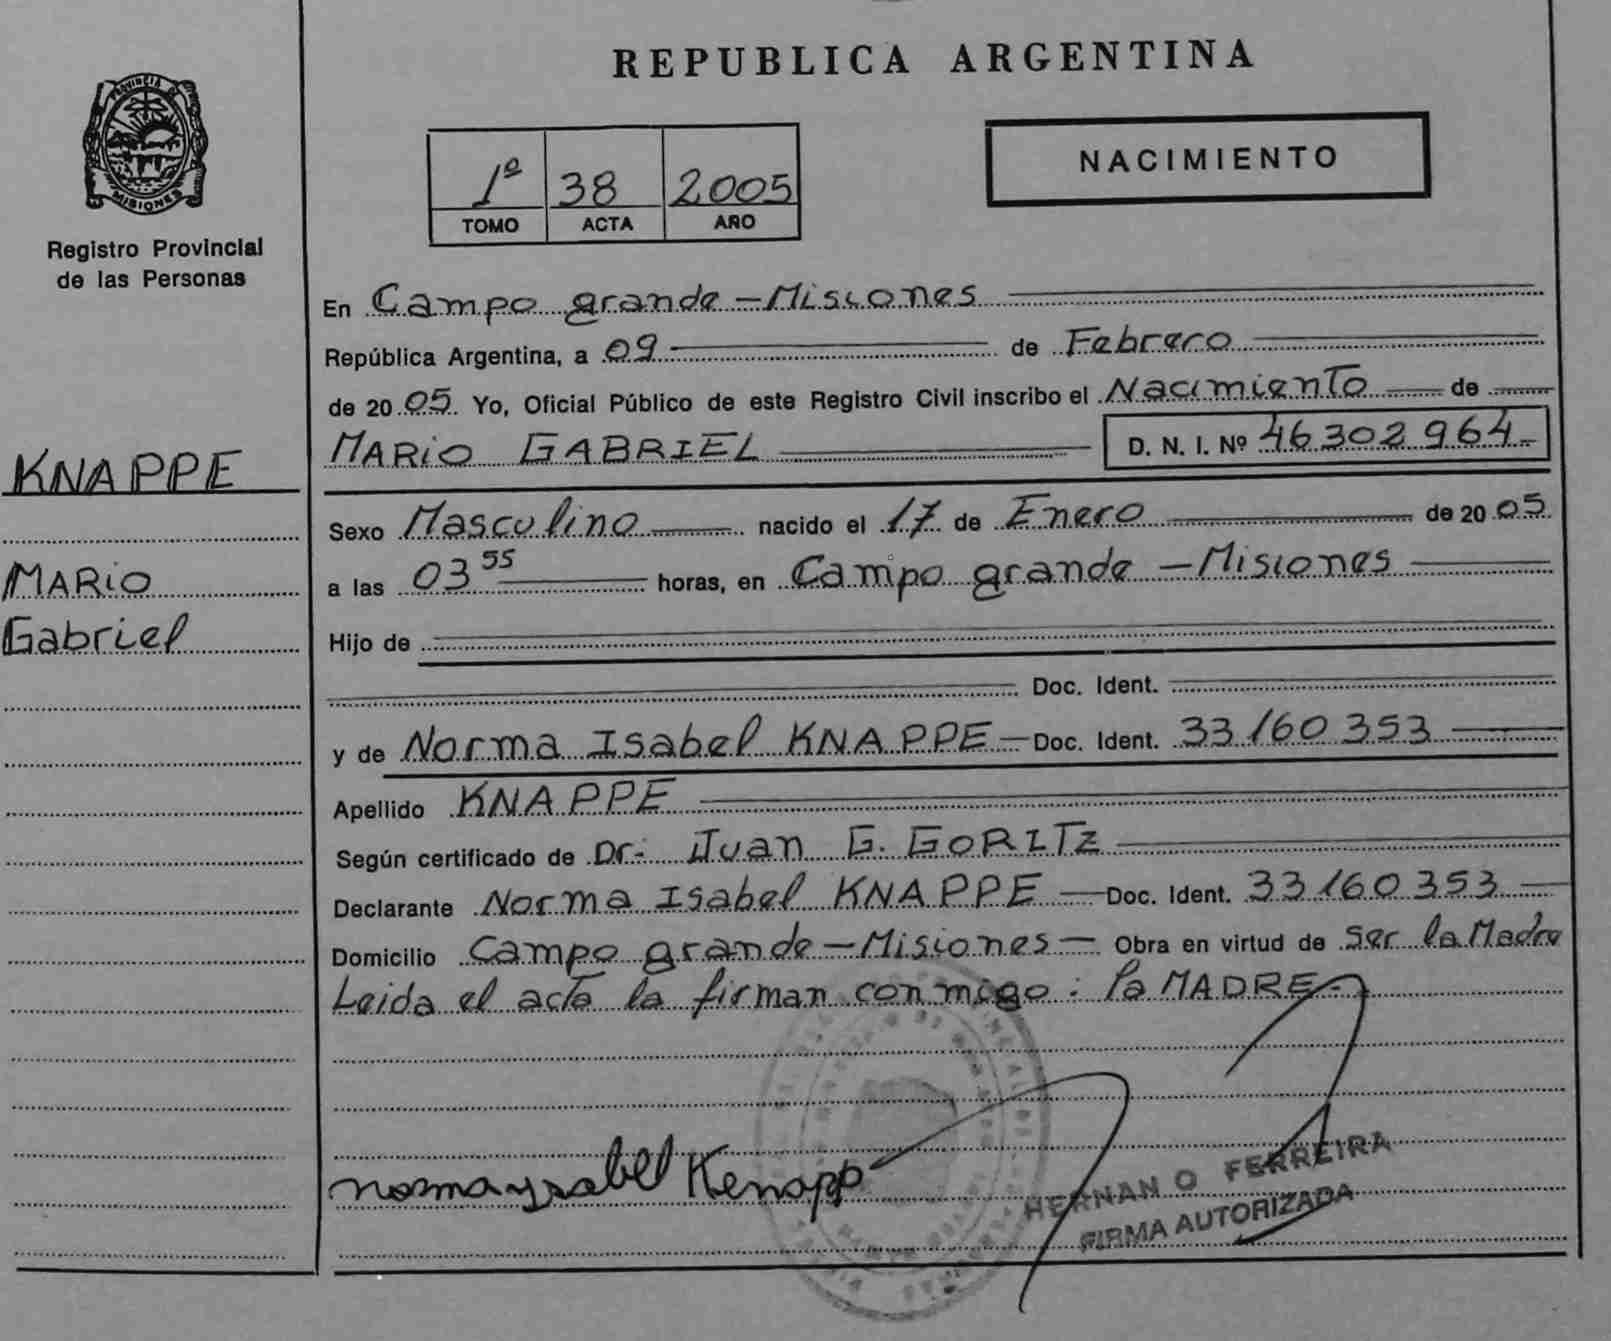 REPUBLICA ARGENTINA
PROVINCIA DE
MISIONES
Registro Provincial
de las Personas
1º 38 2005
TOMO ACTA AÑO
NACIMIENTO
En Campo grande - Misiones
República Argentina, a 09 de Febrero
de 2005. Yo, Oficial Público de este Registro Civil inscribo el Nacimiento de
MARIO GABRIEL D. N. I. Nº 46302964-
KNAPPE
MARIO
Gabriel
Sexo Masculino nacido el 17 de Enero de 2005
a las 03 55 horas, en Campo grande - Misiones
Hijo de
Doc. Ident.
y de Norma Isabel KNAPPE - Doc. Ident. 33160353
Apellido KNAPPE
Según certificado de Dr. Juan G. GORITZ
Declarante Norma Isabel KNAPPE - Doc. Ident. 33160353
Domicilio Campo grande - Misiones - Obra en virtud de Ser la Madre
Leida el acta la firman conmigo: la MADRE.-
norma ysabel Kenapp
HERNAN O FERREIRA
FIRMA AUTORIZADA